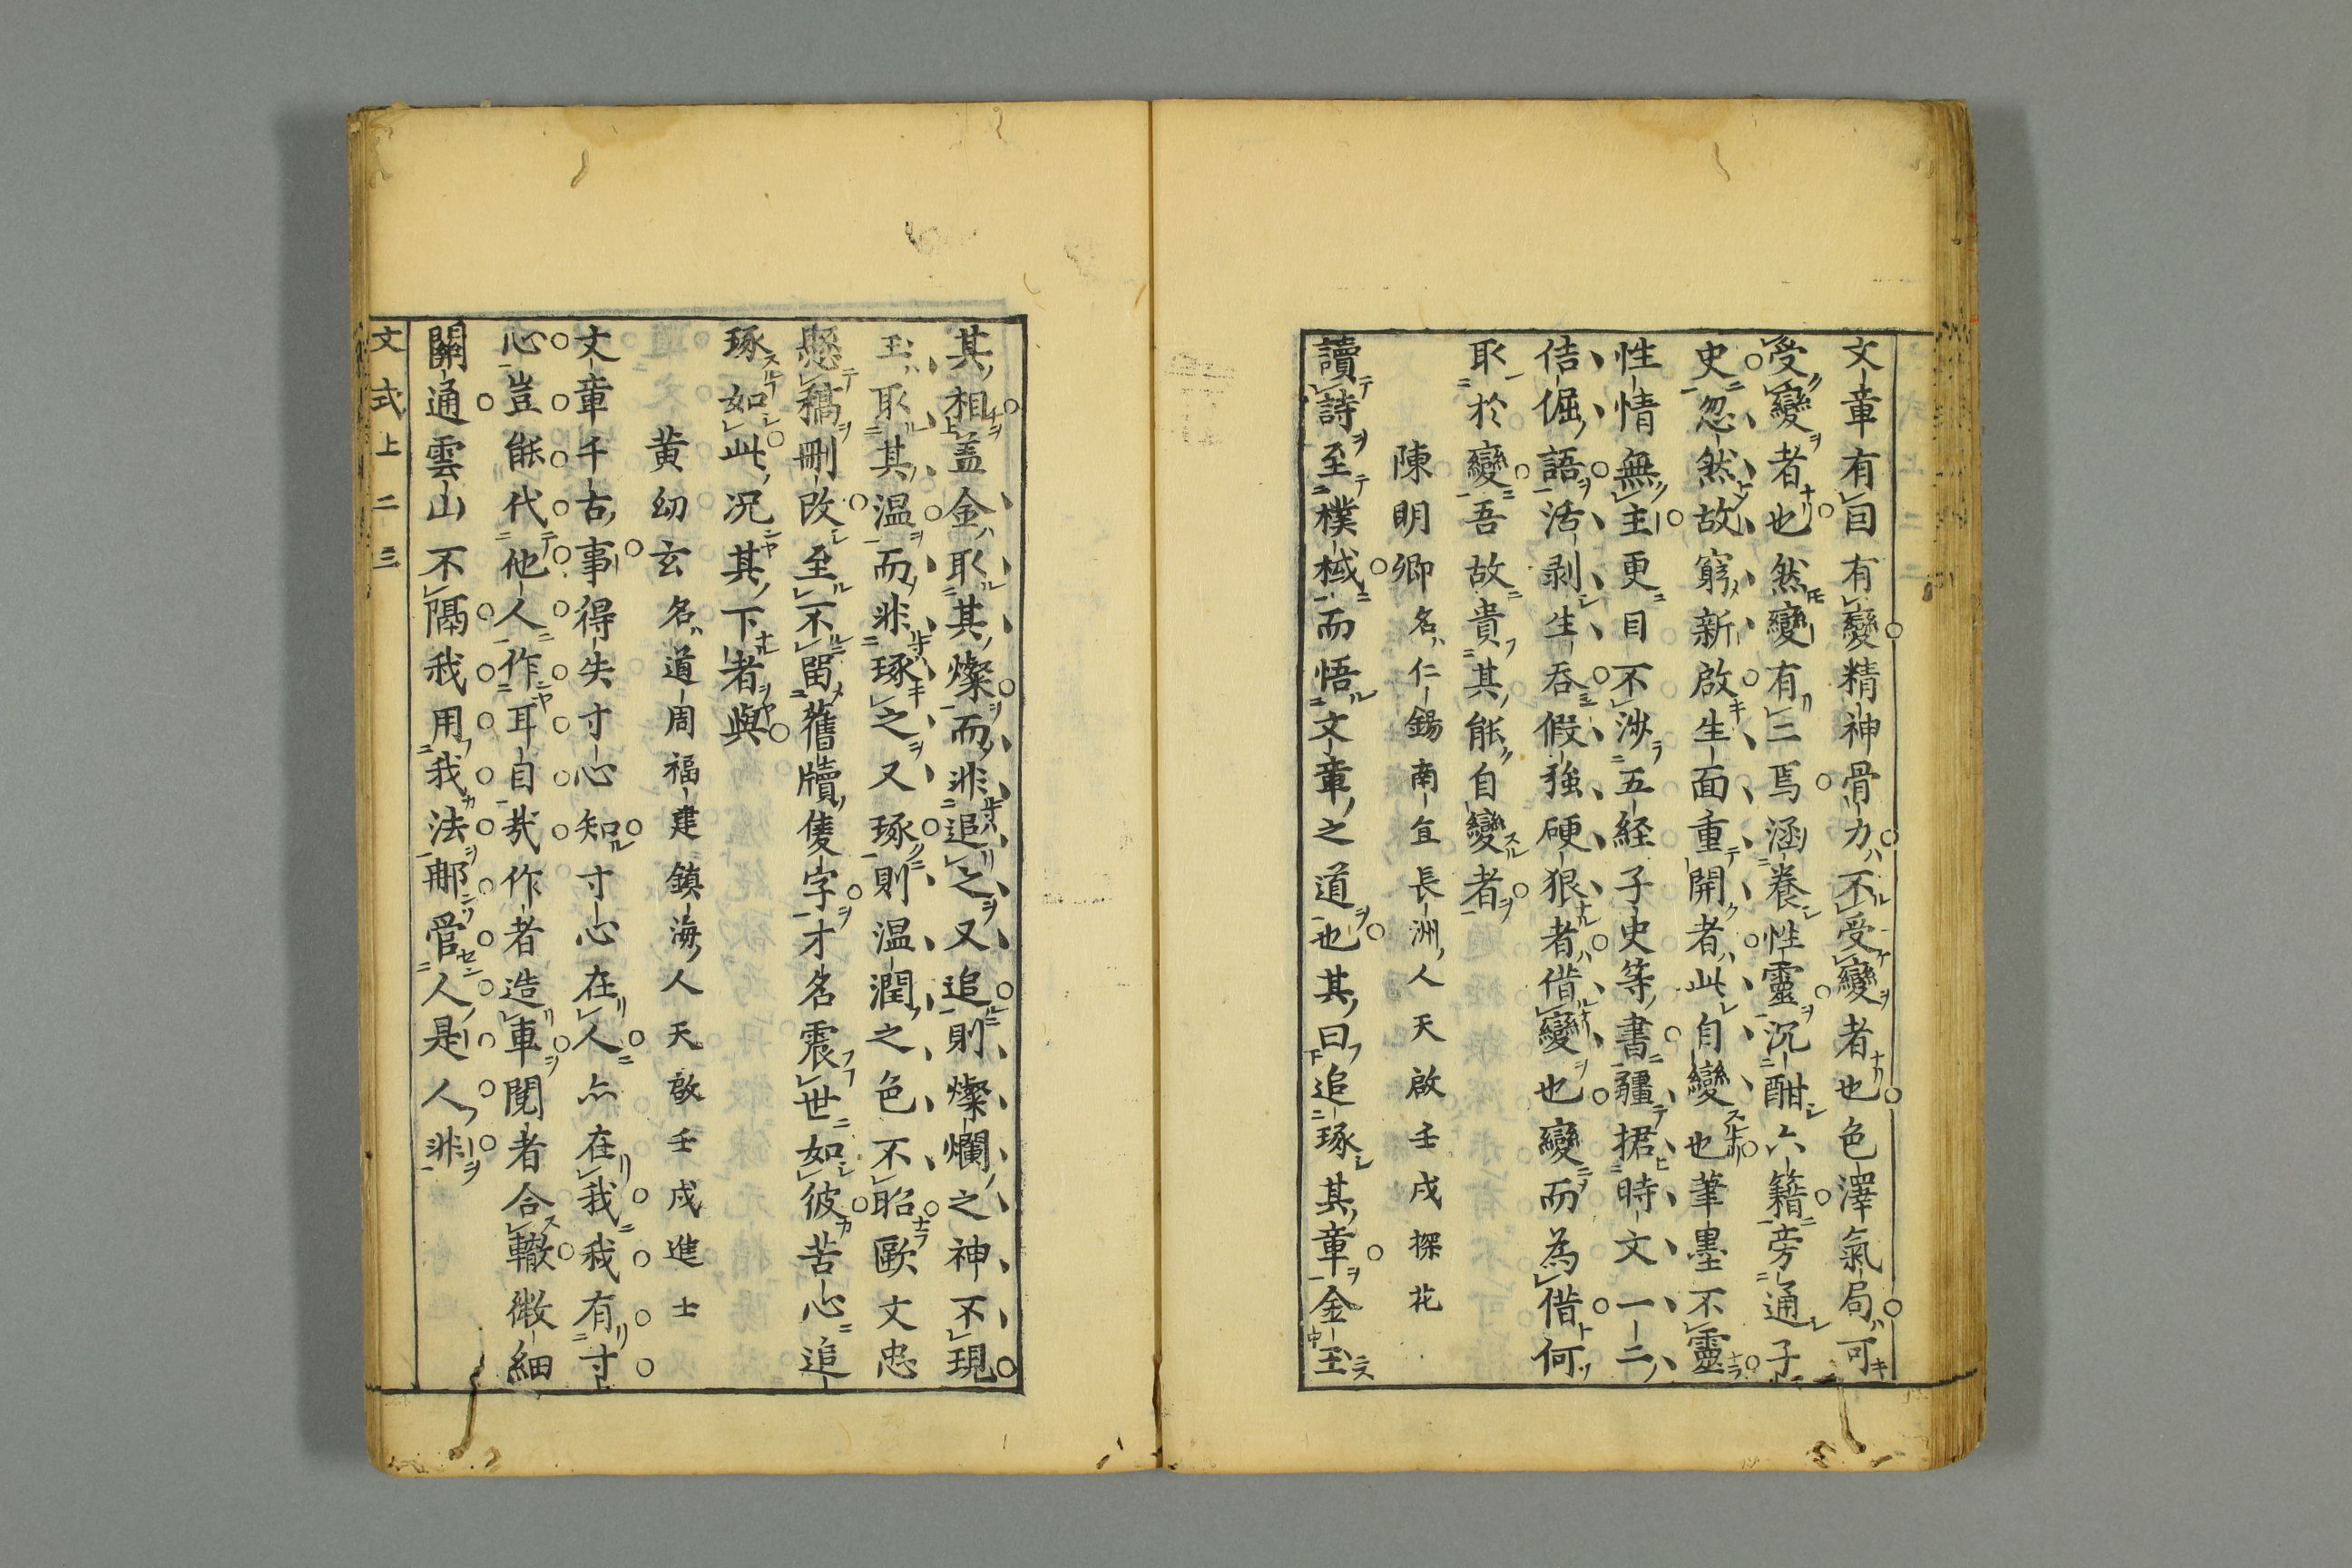 文章有目有變精神骨力不受變者也色澤氣局可
受變者也然變有三焉涵養性靈沉酣六籍旁通子
史忽然故窮新啟生面重開者此自變也筆墨不靈
性情無主更目不涉五経子史等書疆据時文一二
佶倔語活剥生吞假強硬狠者借變也變而為借何
取於變吾故貴其能自變者
陳明卿名仁錫南直長洲人天啟壬戌探花
讀詩至棫而悟文章之道也其曰追琢其章金玉
其相盖金取其燦而非追之又追則燦爛之神不現
玉取其温而非琢之又琢則温潤之色不昭歐文忠
懸稿刪改至不留舊牘隻字才名震世如彼苦心追
琢如此况其下者與
黄幼玄名道周福建鎮海人天啟壬戌進士
文章千古事得失寸心知寸心在人亦在我我有寸
心豈能代他人作耳自我作者造車閲者合轍微細
關通雲山不隔我用我法那管人是人非
文式上二三